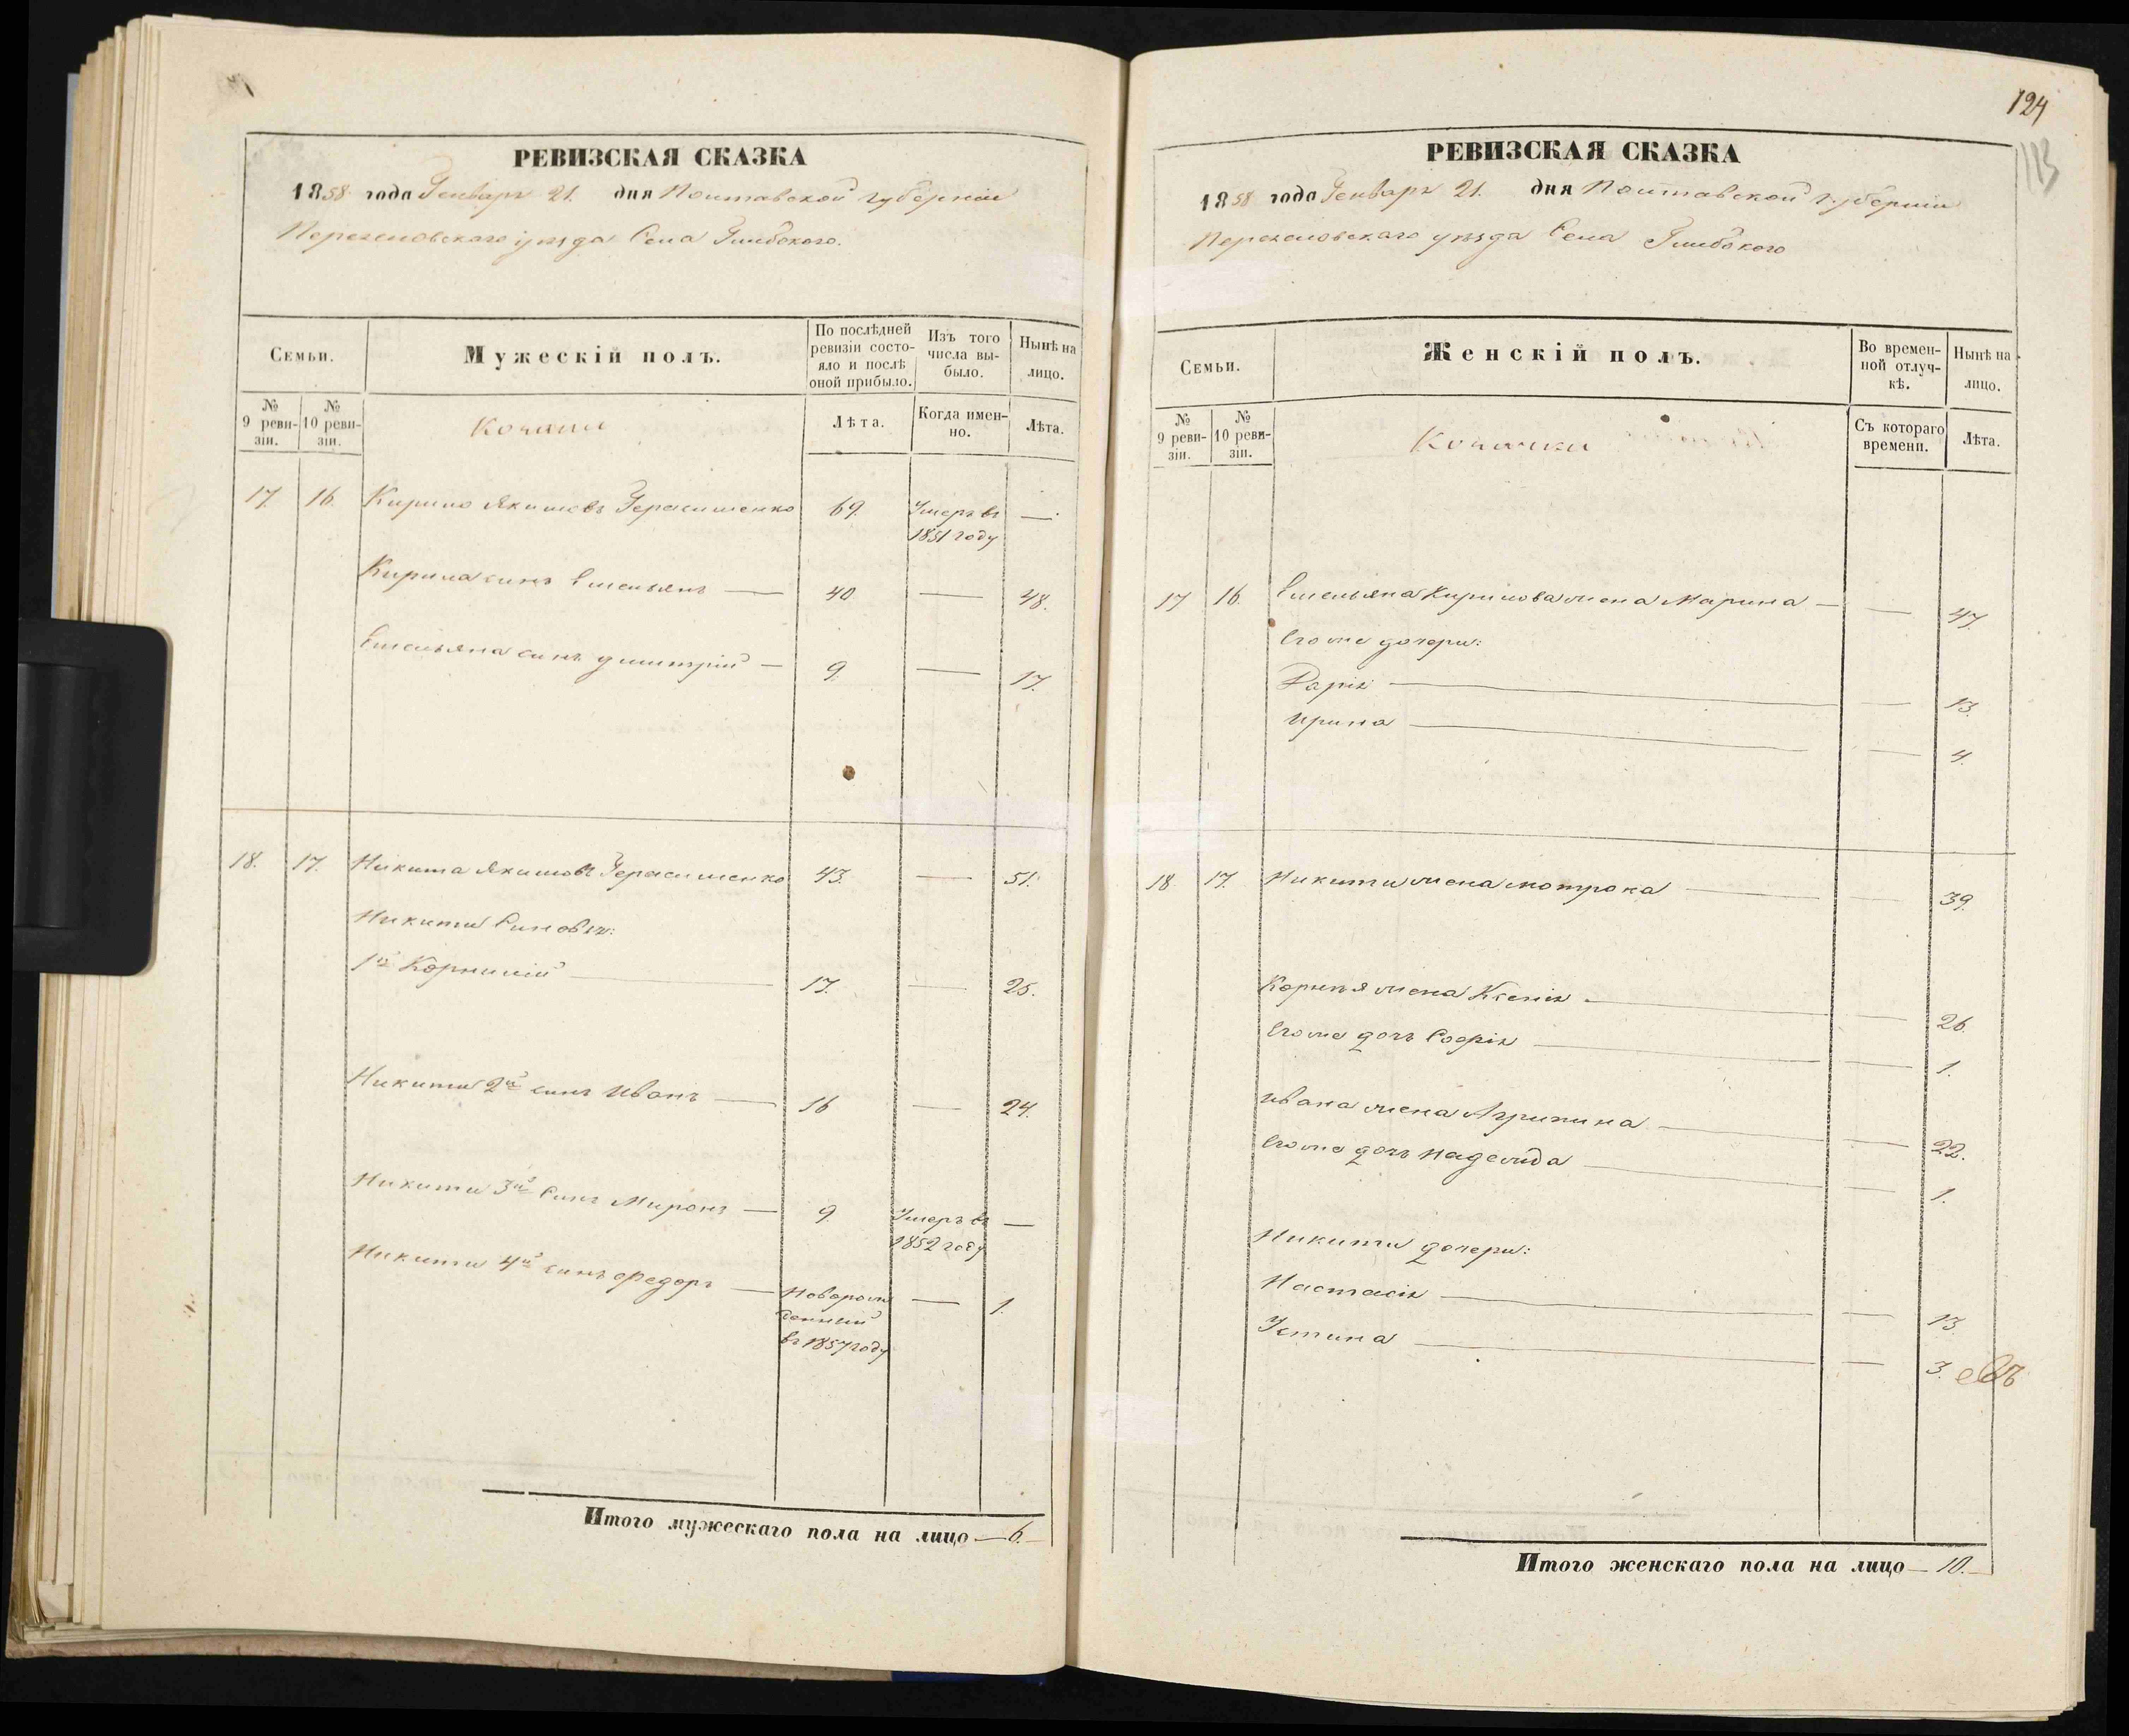 РЕВИЗСКАЯ СКАЗКА
1858 года Генваря 21. дня Полтавской губерніи
Переяславскаго уѣзда Села Глибокого.
Семьи.
Мужескій полъ.
По послѣдней ревизіи состояло и послѣ оной прибыло.
Изъ того числа выбыло.
Нынѣ на лицо.
№ 9 ревизіи.
№ 10 ревизіи.
Козаки
Лѣта.
Когда именно.
Лѣта.
17. 16. Кирило Якимовъ Герасименко 69. Умеръ въ —
1851 году
Кирила синъ Емельянъ — 40 — 48.
Емельяна синъ дмитрій — 9. — 17.
18. 17. Никита Якимовъ Герасименко 43. — 51.
Никити Синовья:
1й Корнилій — 17. — 25.
Никити 2й синъ Иванъ — 16 — 24.
Никити 3й Синъ Миронъ — 9. Умеръ въ —
1852 году
Никити 4й синъ Федоръ — Новорож — 1.
денный
въ 1857 году
Итого мужескаго пола на лицо — 6. —
124
113
РЕВИЗСКАЯ СКАЗКА
1858 года Генваря 21. дня Полтавской губерніи
Переяславскаго уѣзда Села Глибокого
Семьи.
Женскій полъ.
Во временной отлучкѣ.
Нынѣ на лицо.
№ 9 ревизіи.
№ 10 ревизіи.
Козачки
Съ котораго времени.
Лѣта.
17 16. Емельяна Кирилова жена Марина — — 47.
Его же дочери:
Дарія — — 13.
Ирина — — 4.
18. 17. Никити жена мотрона — — 39.
Корнѣя жена Ксенія — — 26.
Его же дочь Софія — — 1.
Ивана жена Агрипина — — 22.
Его же дочь надежда — — 1.
Никити дочери:
Настасія — — 13.
Устина — — 3.
Итого женскаго пола на лицо — 10. —